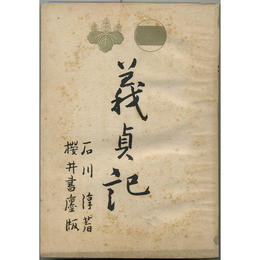 義貞記
石川淳著
櫻井書店版